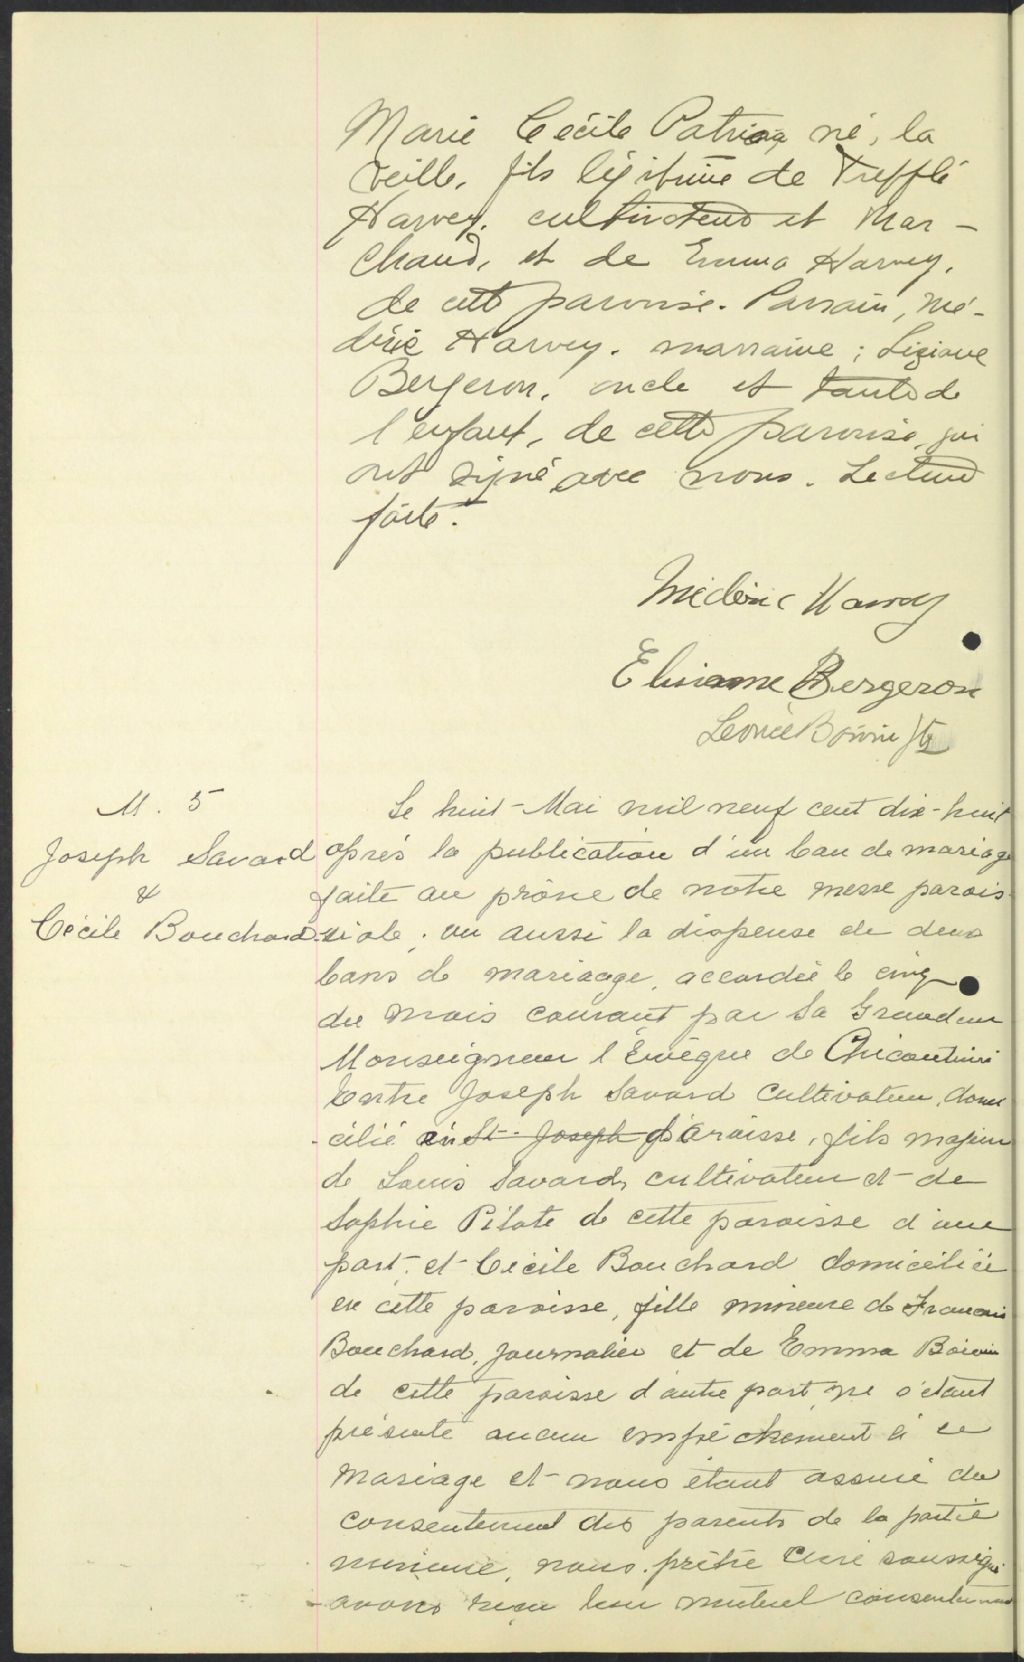 Marie Cécile Patricia, né, la
veille, fils légitime de Trefflé
Harvey, cultivateur et Mar-
chand, et de Emma Harvey,
de cett paroisse. Parrain, Mé-
déric Harvey. marraine ; Liziane
Bergeron, oncle et tante de
l'enfant, de cette paroisse, qui
ont signé avec nous. Lecture
faite.
Médéric Harvey
Elisianne Bergeron
Leonce Boivin Ptr
M. 5
Joseph Savard
&
Cécile Bouchard
Le huit Mai mil neuf cent dix-huit
après la publication d'un ban de mariage
faite au prône de notre messe parois-
siale ; vu aussi la dispense de deux
bans de mariage, accordée le cinq
du mois courant par Sa Grandeur
Monseigneur l'Évêque de Chicoutimi
Entre Joseph Savard cultivateur, domi
-cilié en St-Joseph paroisse, fils majeur
de Louis Savard, cultivateur et de
Sophie Pilote de cette paroisse d'une
part, et Cécile Bouchard domiciliée
en cette paroisse, fille mineure de François
Bouchard, journalier et de Emma Boivin
de cette paroisse d'autre part, ne s'étant
présenté aucun empêchement à ce
mariage et nous étant assuré du
consentement des parents de la partie
mineure, nous, prêtre curé soussigné
avons reçu leur mutuel consentement